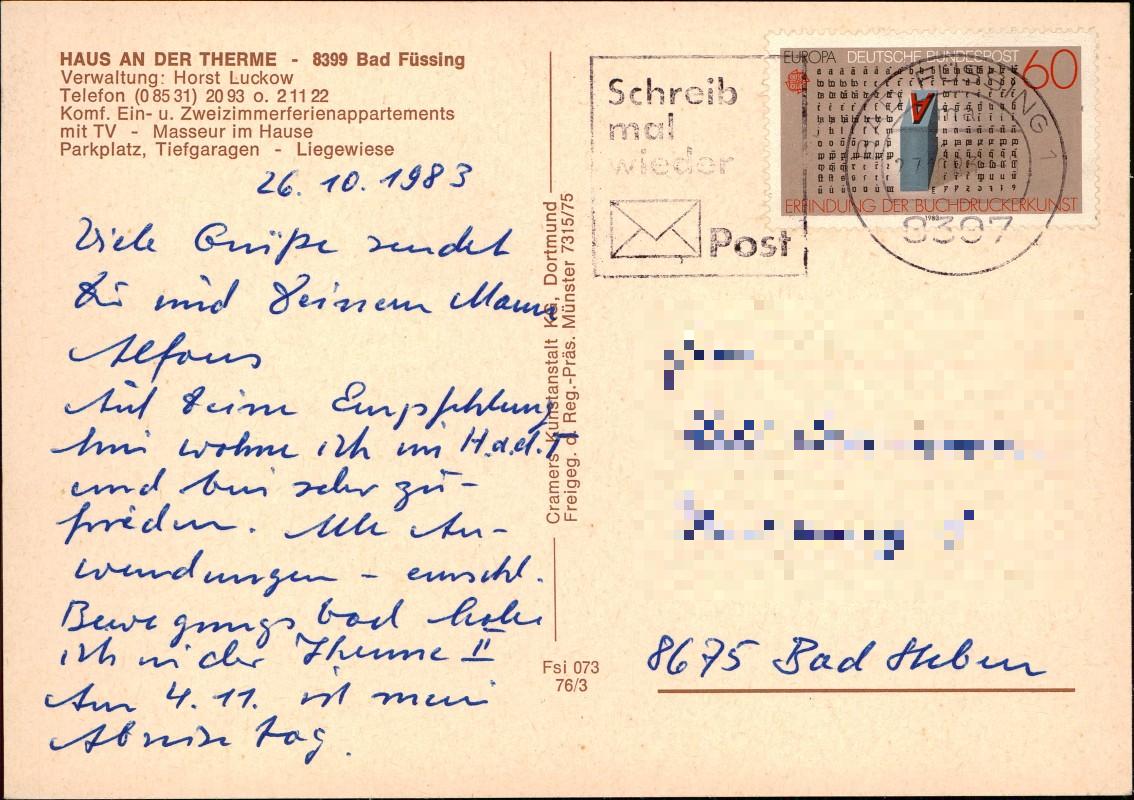 HAUS AN DER THERME - 8399 Bad Füssing
Verwaltung: Horst Luckow
Telefon (0 85 31) 20 93 o. 2 11 22
Komf. Ein- u. Zweizimmerferienappartements
mit TV - Masseur im Hause
Parkplatz, Tiefgaragen - Liegewiese
26. 10. 1983
Viele Grüße sendet
Dir und Deinem Manne
Alfons
Auf Deine Empfehlung
hin wohne ich im H.a.d.T
und bin sehr zu-
frieden. Alle An-
wendungen - einschl.
Bewegungsbad habe
ich in der Therme II
Am 4. 11. ist mein
Abreisetag.
Cramers Kunstanstalt KG, Dortmund
Freigeg. d. Reg.-Präs. Münster 7315/75
Fsi 073
76/3
Schreib
mal
wieder
Post
EUROPA DEUTSCHE BUNDESPOST 60
A
ERFINDUNG DER BUCHDRUCKERKUNST
1983
8397
1
8675 Bad Steben